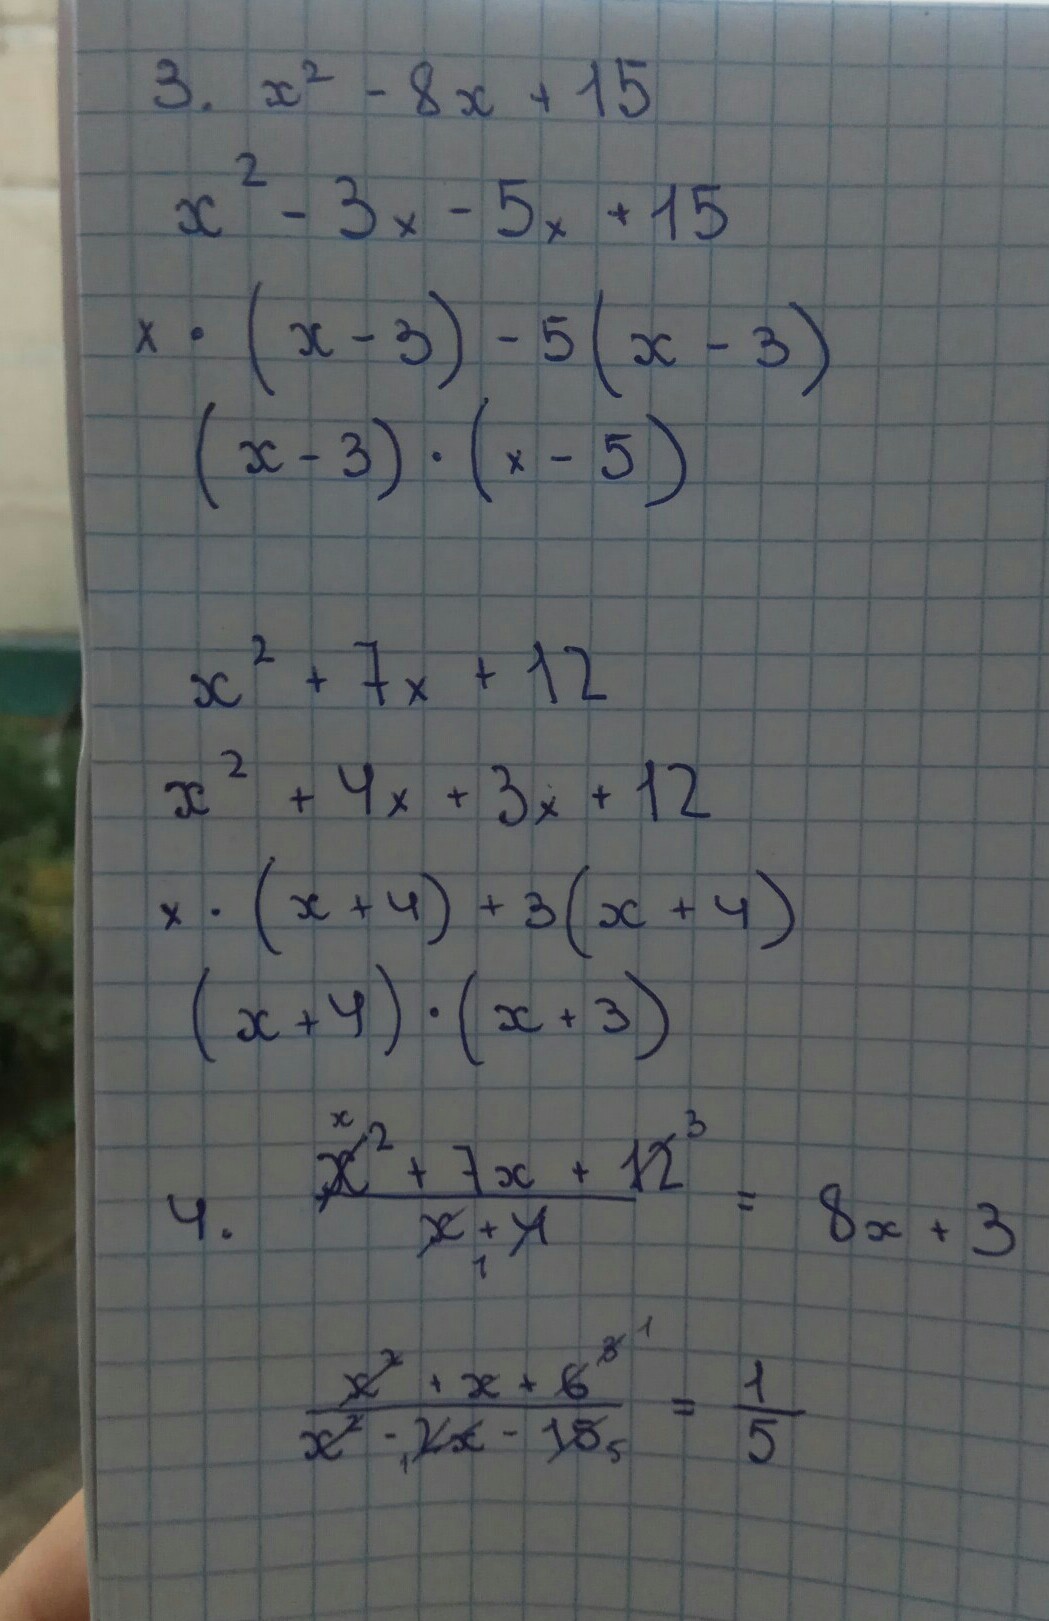 3. x² - 8x + 15
x² - 3x - 5x + 15
x · (x - 3) - 5(x - 3)
(x - 3) · (x - 5)
x² + 7x + 12
x² + 4x + 3x + 12
x · (x + 4) + 3(x + 4)
(x + 4) · (x + 3)
x
x² + 7x + 12 3
4. = 8x + 3
x + 4
1
3 1
x² + x + 6
= 1/5
x² - 1 2x - 15 5